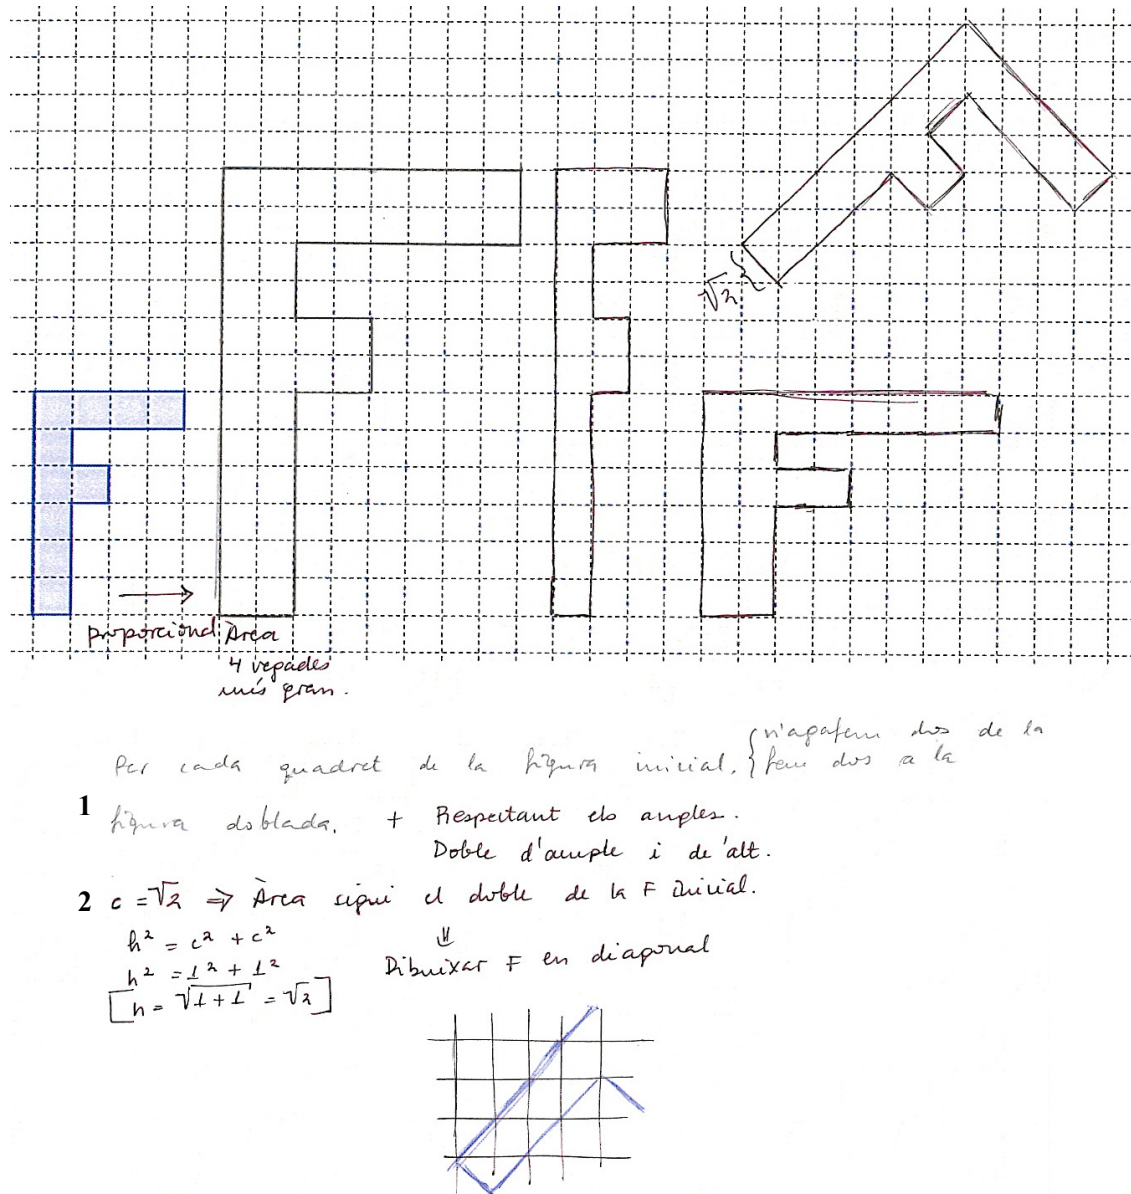 √2
proporcional
Àrea
4 vegades
més gran.
Per cada quadret de la figura inicial, { n'agafem dos de la
fem dos a la
1 figura doblada. + Respectant els angles.
Doble d'ample i de'alt.
2 c = √2 ⇒ Àrea sigui el doble de la F inicial.
h² = c² + c²
⇓
h² = 1² + 1²
Dibuixar F en diagonal
[h = √1+1 = √2]